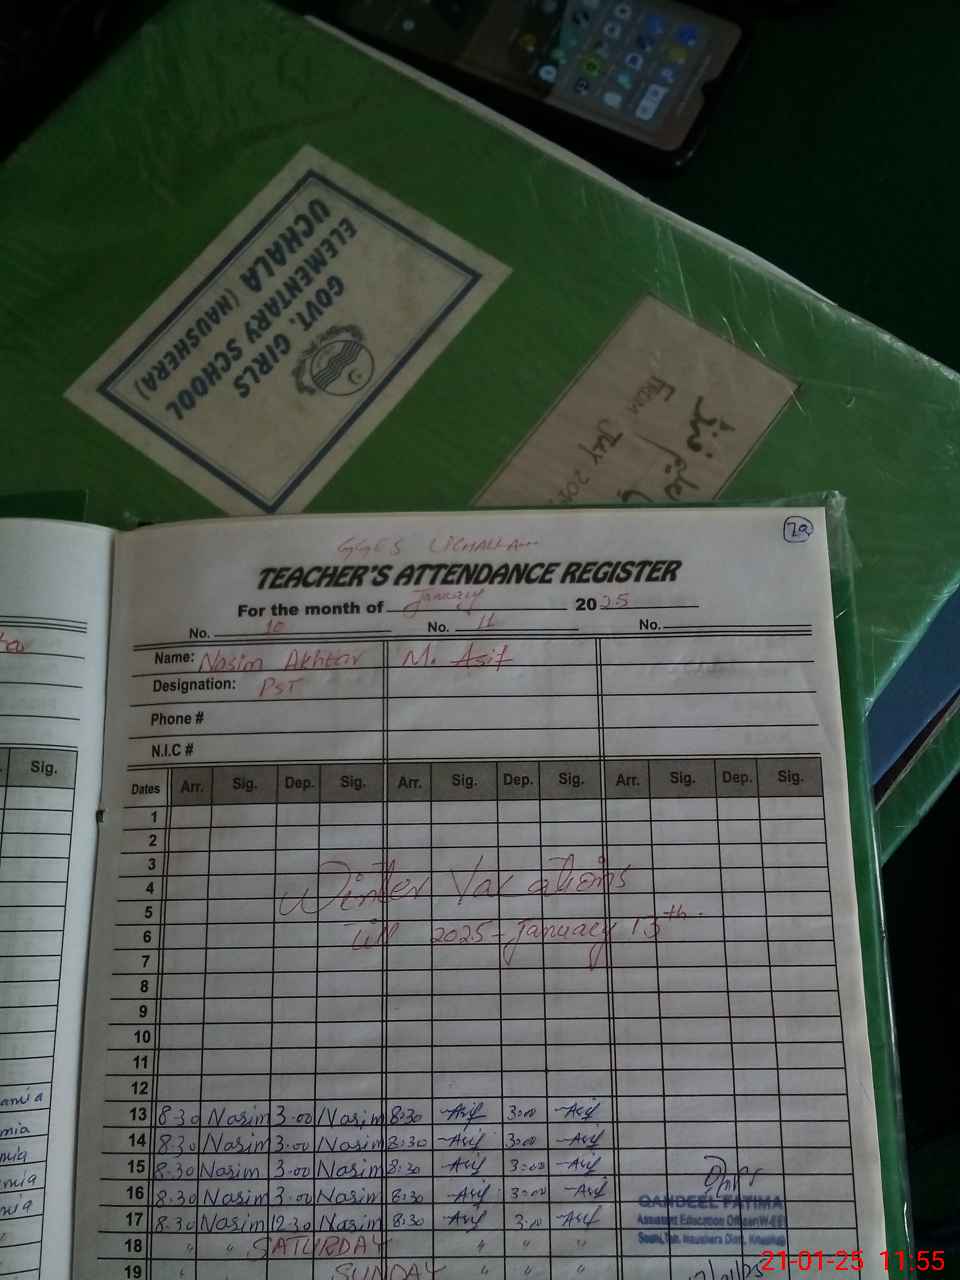 GOVT. GIRLS
ELEMENTARY SCHOOL
UCHALA (NAUSHERA)
FROM JULY
29
GGES UCHALLAH
TEACHER'S ATTENDANCE REGISTER
For the month of January 2025
No. 10 No. 11 No.
Name: Nasim Akhtar M. Asif
Designation: PST
Phone #
N.I.C #
Sig.
Dates Arr. Sig. Dep. Sig. Arr. Sig. Dep. Sig. Arr. Sig. Dep. Sig.
1
2
3
4
Winter Vacations
5
6 till 2025-January 13th.
7
8
9
10
11
12
13 8:30 Nasim 3:00 Nasim 8:30 Asif 3:00 Asif
14 8:30 Nasim 3:00 Nasim 8:30 Asif 3:00 Asif
15 8:30 Nasim 3:00 Nasim 8:30 Asif 3:00 Asif
16 8:30 Nasim 3:00 Nasim 8:30 Asif 3:00 Asif
QANDEEL FATIMA
17 8:30 Nasim 12:30 Nasim 8:30 Asif 3:00 Asif
Assistant Education Officer
18 " " SATURDAY " "
19 " SUNDAY " "
21-01-25 11:55